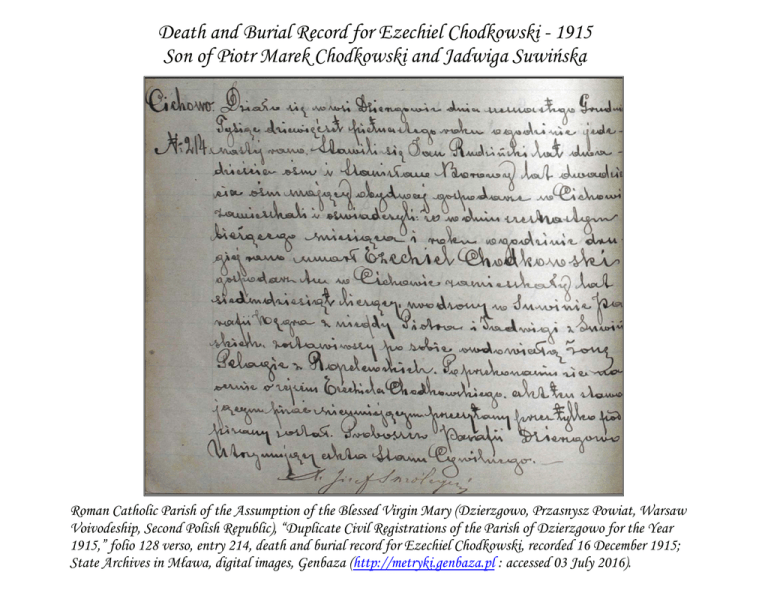 Death and Burial Record for Ezechiel Chodkowski - 1915
Son of Piotr Marek Chodkowski and Jadwiga Suwińska
Cichowo. Działo się we wsi Dziengowie dnia Grudn
Tysiąc dziewięćset piętnastego roku o godzinie jede-
N: 214. nastej rano. Stawili się Jan Rudziński lat dwa-
dzieścia ośm i Stanisław Borowy lat dwadzie
ścia ośm mający obydwaj gospodarze w Cichowi
zamieszkali i oświadczyli: że w dniu czternastym
bieżącego miesiąca i roku o godzinie dru
giej rano umarł Ezechiel Chodkowski
gospodarz tu w Cichowie zamieszkały lat
siedmdziesiąt liczący, urodzony w Suwinie Pa
rafii Węgra z niegdy Piotra i Jadwigi z Suwiń
skich, zostawiwszy po sobie owdowiałą żonę
Pelagię z Ropelewskich. Po przekonaniu się na
ocznie o zejściu Ezechiela Chodkowskiego, akt ten stawa
jącym pisać nieumiejącym przeczytany przez tylko pod
pisany został. Proboszcz Parafii Dziengowo
Utrzymujący akta Stanu Cywilnego.
Józef
Roman Catholic Parish of the Assumption of the Blessed Virgin Mary (Dzierzgowo, Przasnysz Powiat, Warsaw
Voivodeship, Second Polish Republic), “Duplicate Civil Registrations of the Parish of Dzierzgowo for the Year
1915,” folio 128 verso, entry 214, death and burial record for Ezechiel Chodkowski, recorded 16 December 1915;
State Archives in Mława, digital images, Genbaza (http://metryki.genbaza.pl : accessed 03 July 2016).